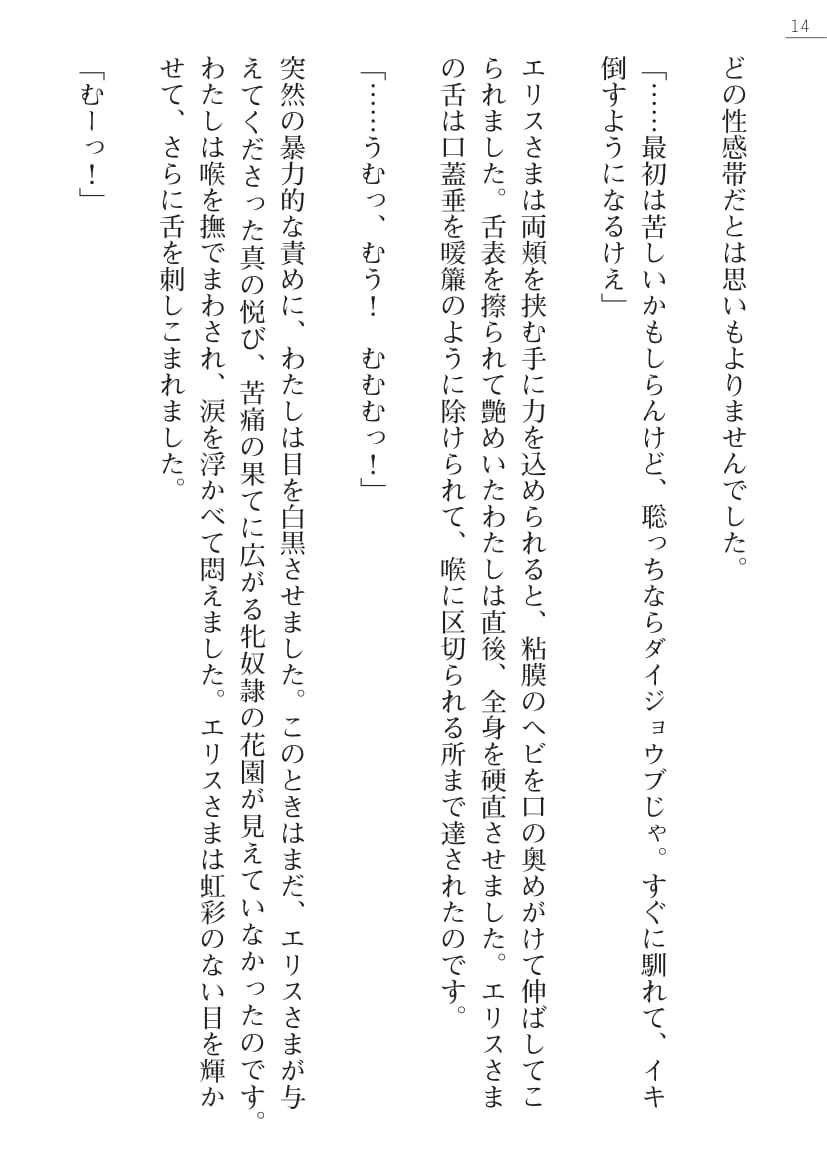 14
どの性感帯だとは思いもよりませんでした。
「……最初は苦しいかもしらんけど、聡っちならダイジョウブじゃ。すぐに馴れて、イキ
倒すようになるけえ」
エリスさまは両頬を挟む手に力を込められると、粘膜のヘビを口の奥めがけて伸ばしてこ
られました。舌表を擦られて艶めいたわたしは直後、全身を硬直させました。エリスさま
の舌は口蓋垂を暖簾のように除けられて、喉に区切られる所まで達されたのです。
「……うむっ、むう！　むむむっ！」
突然の暴力的な責めに、わたしは目を白黒させました。このときはまだ、エリスさまが与
えてくださった真の悦び、苦痛の果てに広がる牝奴隷の花園が見えていなかったのです。
わたしは喉を撫でまわされ、涙を浮かべて悶えました。エリスさまは虹彩のない目を輝か
せて、さらに舌を刺しこまれました。
「むーっ！」